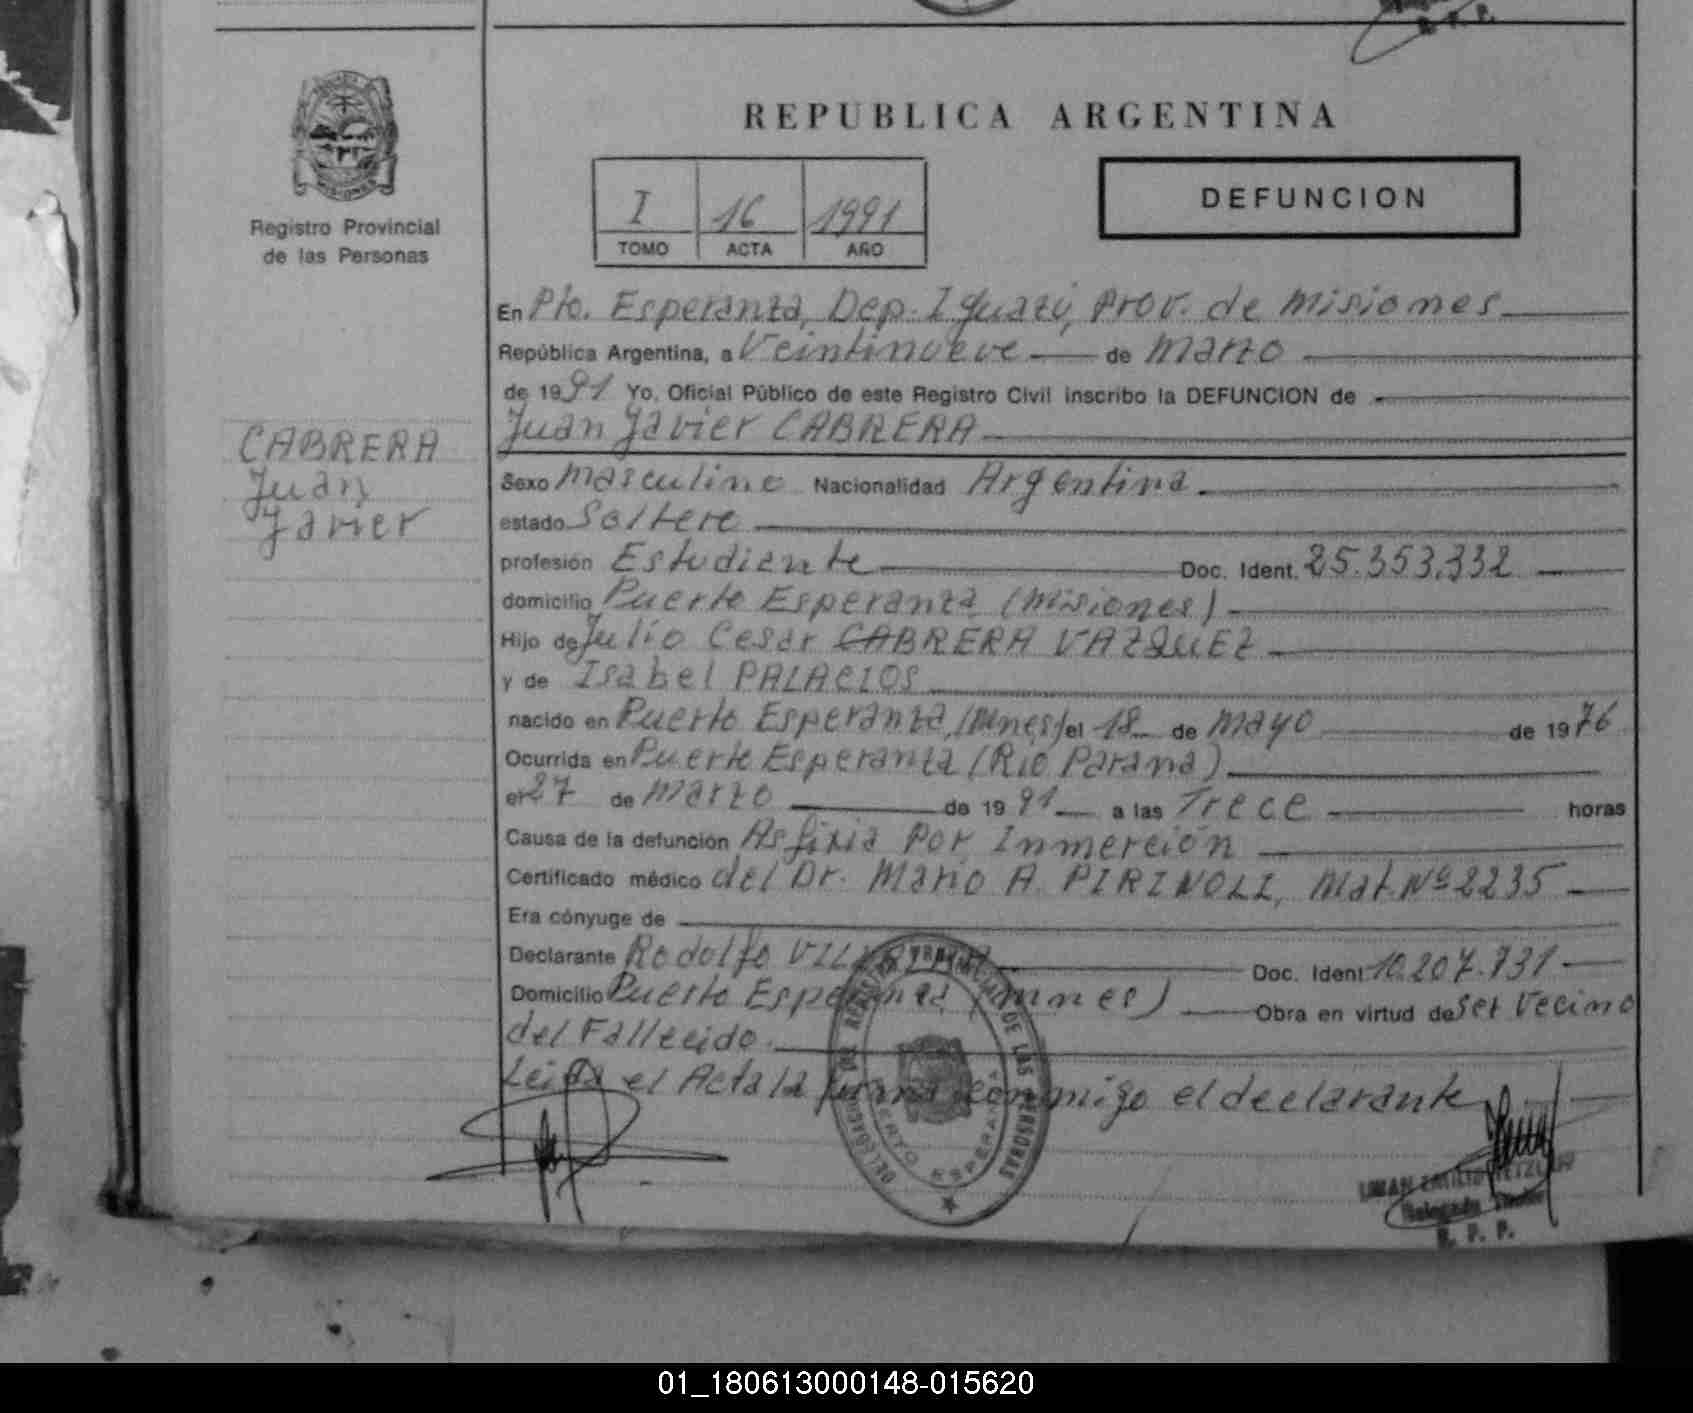 R. P. P.
MISIONES
Registro Provincial
de las Personas
REPUBLICA ARGENTINA
I 16 1991
TOMO ACTA AÑO
DEFUNCION
En Pto. Esperanza, Dep. Iguazú, Prov. de Misiones
República Argentina, a Veintinueve de Marzo
de 1991 Yo, Oficial Público de este Registro Civil inscribo la DEFUNCION de
Juan Javier CABRERA
CABRERA
Juan
Javier
Sexo Masculino Nacionalidad Argentina
estado Soltero
profesión Estudiante Doc. Ident. 25.353.332
domicilio Puerto Esperanza (Misiones)
Hijo de Julio Cesar CABRERA VAZQUEZ
y de Isabel PALACIOS
nacido en Puerto Esperanza, (Mnes) el 18 de Mayo de 1976
Ocurrida en Puerto Esperanza (Río Paraná)
el 27 de Marzo de 1991 a las Trece horas
Causa de la defunción Asfixia Por Inmerción
Certificado médico del Dr. Mario A. PIRINOLI, Mat. Nº 2235
Era cónyuge de
Declarante Rodolfo Doc. Ident. 10.207.731
Domicilio Puerto Esperanza (Mnes) Obra en virtud de Ser Vecino
del Fallecido.
Leida el Acta la firma conmigo el declarante
DELEGACION DEL REGISTRO PROVINCIAL DE LAS PERSONAS
PUERTO ESPERANZA
R. P. P.
01_180613000148-015620